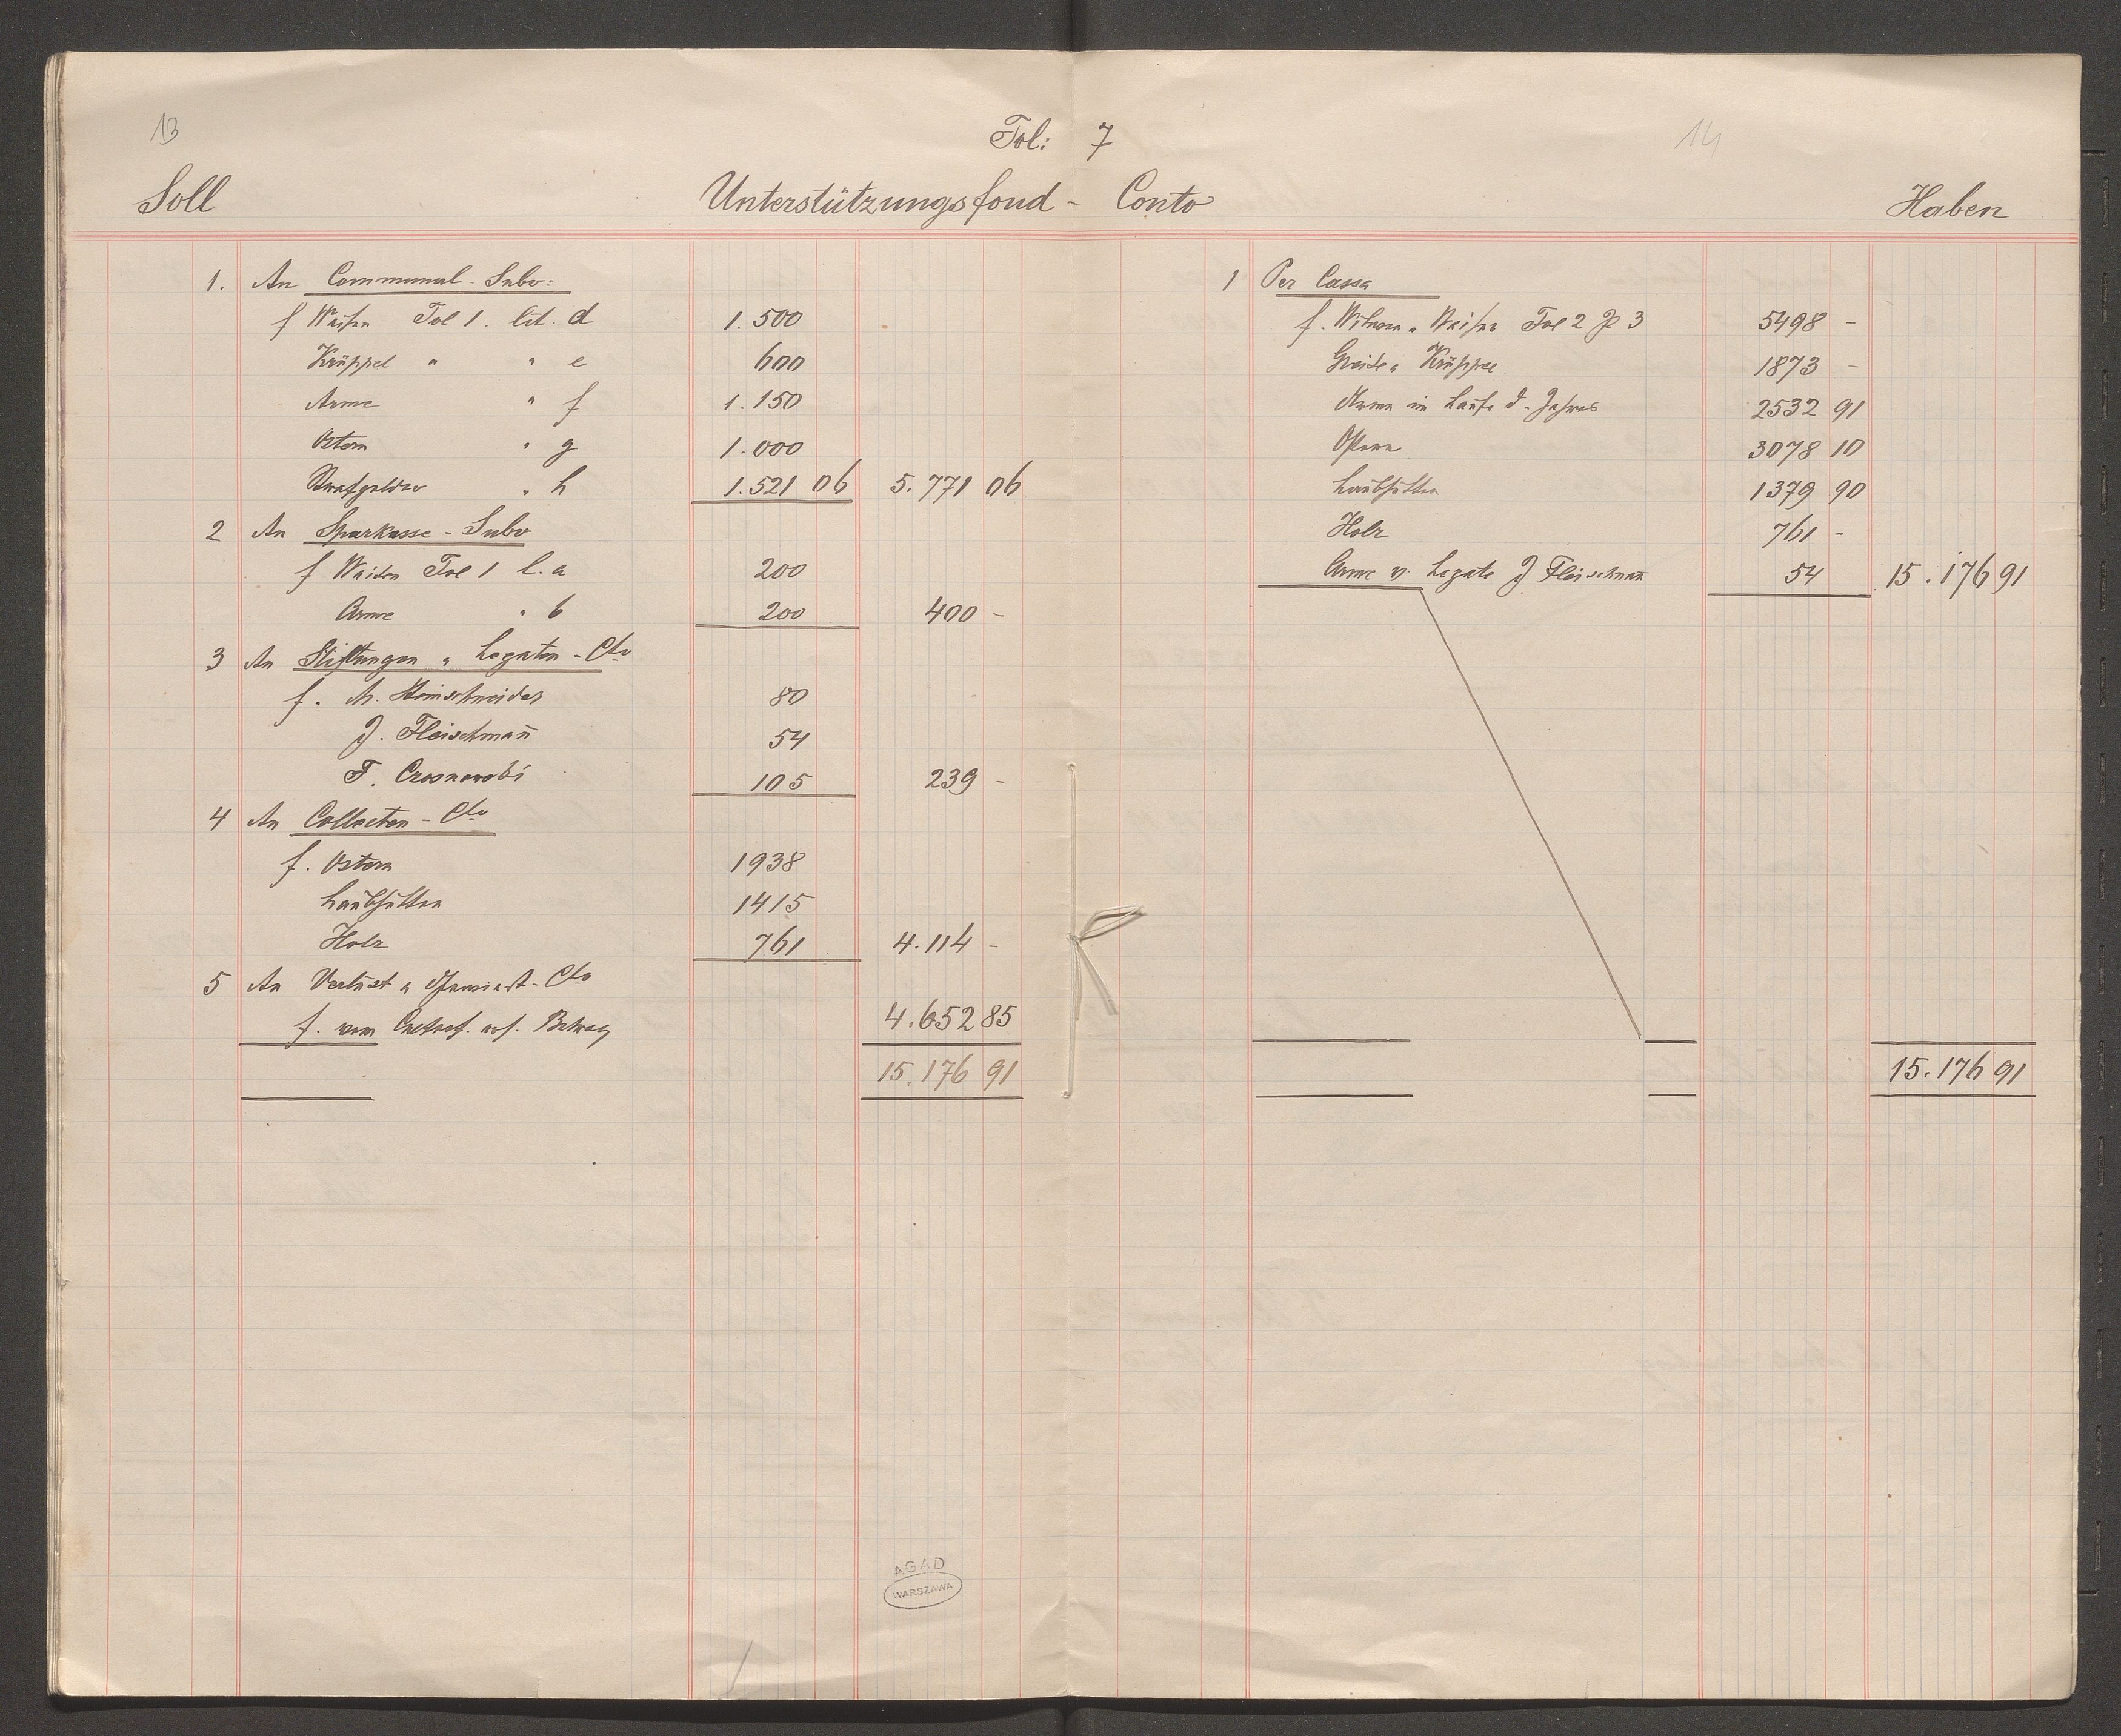 13
Fol: 7
14
Soll
Unterstützungsfond - Conto
Haben
1. An Communal - Subv:
f Waisen Fol 1. lit. d 1.500
Krüppel " " e 600
Arme " f 1.150
Ostern " g 1.000
Strafgelder " h 1.521 06 5.771 06
2 An Sparkasse - Subv
f Waisen Fol 1 l. a 200
Arme " b 200 400 -
3 An Stiftungen u Legaten - Cto
f. M. Steinschneider 80
J. Fleischmañ 54
F. 105 239 -
4 An Collecten - Cto
f. Ostern 1938
Laubhütten 1415
Holz 761 4.114 -
5 An Verlust u Cto
f. vom Betrag 4.652 85
15.176 91
1 Per Cassa
f. Witwen u Waisen Fol 2 P 3 5498 -
Greise u Krüppel 1873 -
Armen im Laufe d. Jahres 2532 91
Ostern 3078 10
Laubhütten 1379 90
Holz 761 -
Arme v. Legate J Fleischmañ 54 15.176 91
15.176 91
AGAD
WARSZAWA